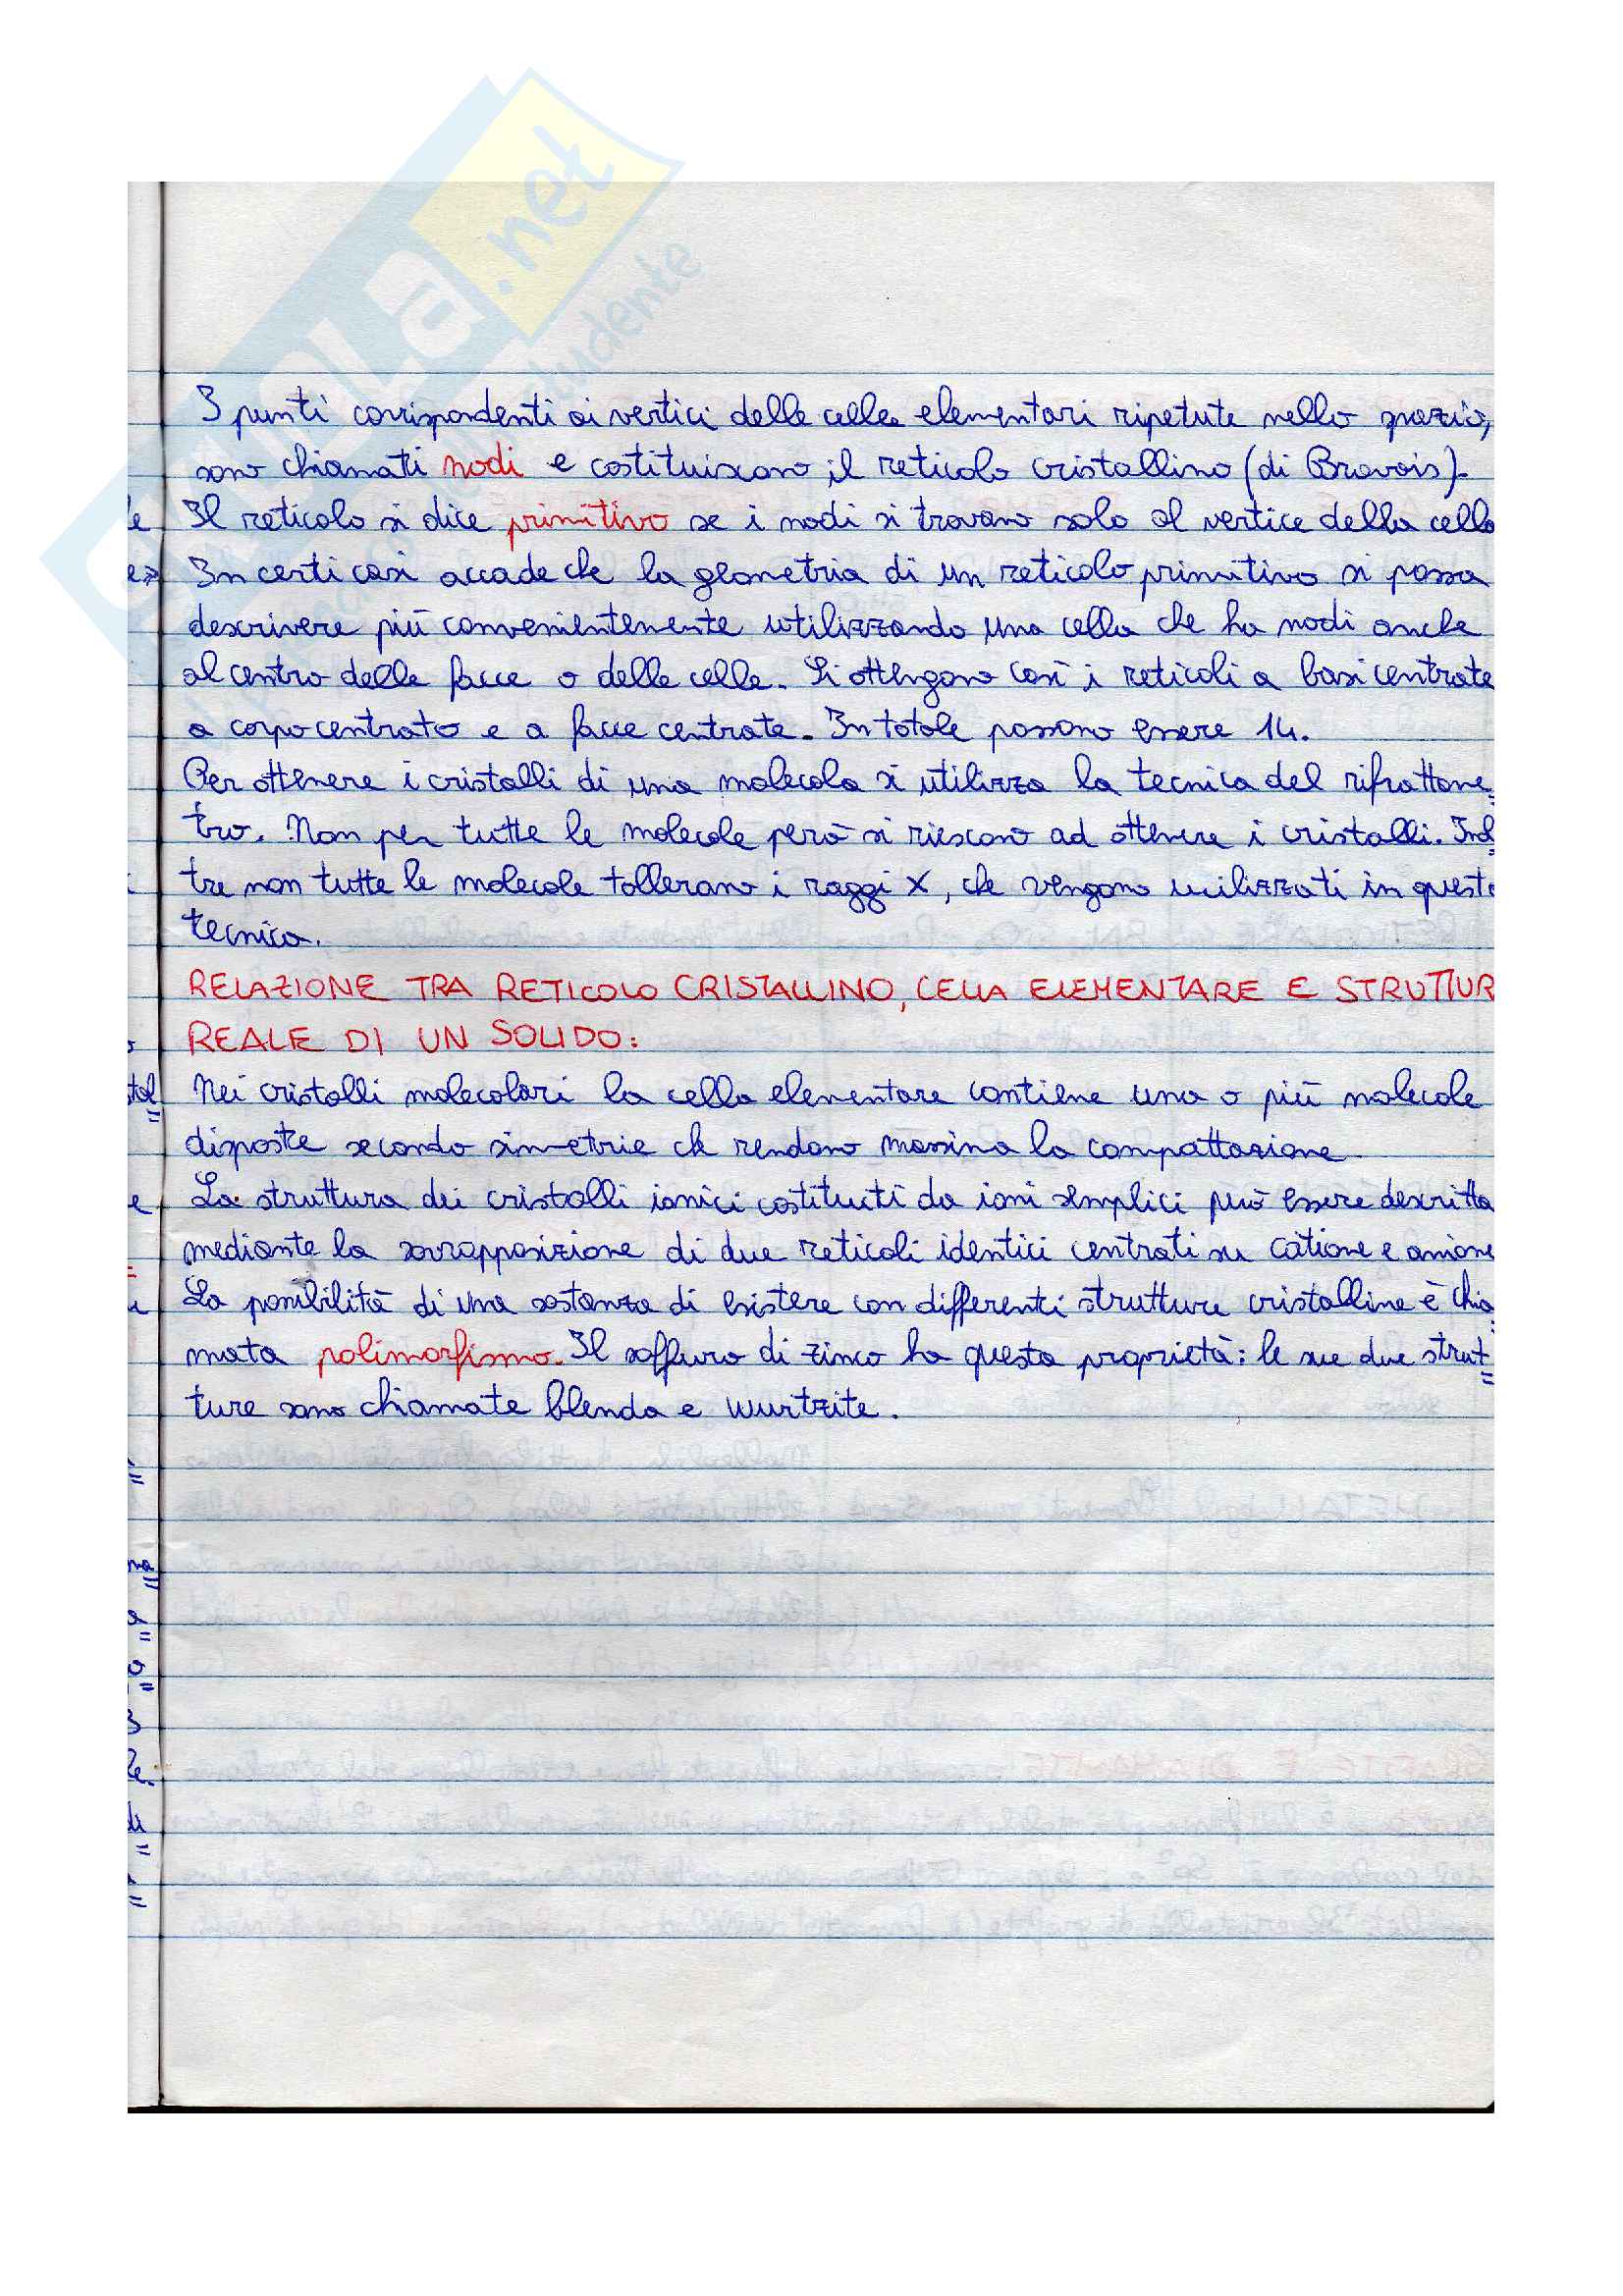 I punti corrispondenti ai vertici delle celle elementari ripetute nello spazio,
sono chiamati nodi e costituiscono il reticolo cristallino (di Bravois).
Il reticolo si dice primitivo se i nodi si trovano solo al vertice della cella
In certi casi accade che la geometria di un reticolo primitivo si possa
descrivere più convenientemente utilizzando una cella che ha nodi anche
al centro delle facce o delle celle. Si ottengono così i reticoli a basi centrate
a corpo centrato e a facce centrate. In totale possono essere 14.
Per ottenere i cristalli di una molecola si utilizza la tecnica del rifrattome=
tro. Non per tutte le molecole però si riescono ad ottenere i cristalli. Inol=
tre non tutte le molecole tollerano i raggi X, che vengono utilizzati in questa
tecnica.
RELAZIONE TRA RETICOLO CRISTALLINO, CELLA ELEMENTARE E STRUTTUR
REALE DI UN SOLIDO:
Nei cristalli molecolari la cella elementare contiene una o più molecole
disposte secondo simmetrie che rendano massima la compattazione
La struttura dei cristalli ionici costituiti da ioni semplici può essere descritta
mediante la sovrapposizione di due reticoli identici centrati su catione e anione
La possibilità di una sostanza di esistere con differenti strutture cristalline è chia
mata polimorfismo. Il solfuro di zinco ha questa proprietà: le sue due strut=
ture sono chiamate blenda e wurtzite.
.net
studente